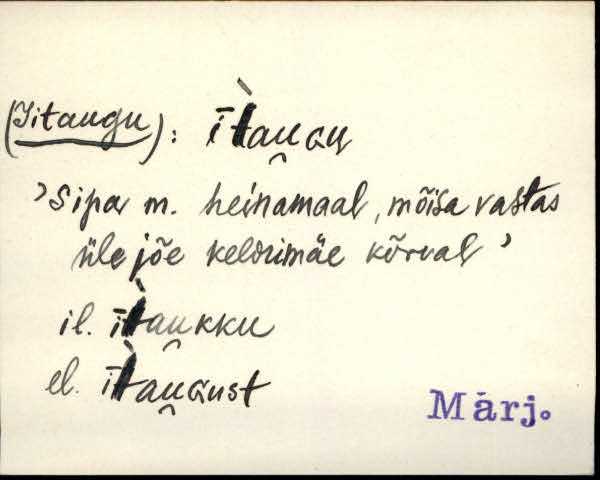 (Iitaugu): ī̀tau̯ɢu
’Sipa m. heinamaal, mõisa vastas
üle jõe keldrimäe kõrval’
il. ī̀tau̯kku
el. ī̀tau̯ɢust
Märj.